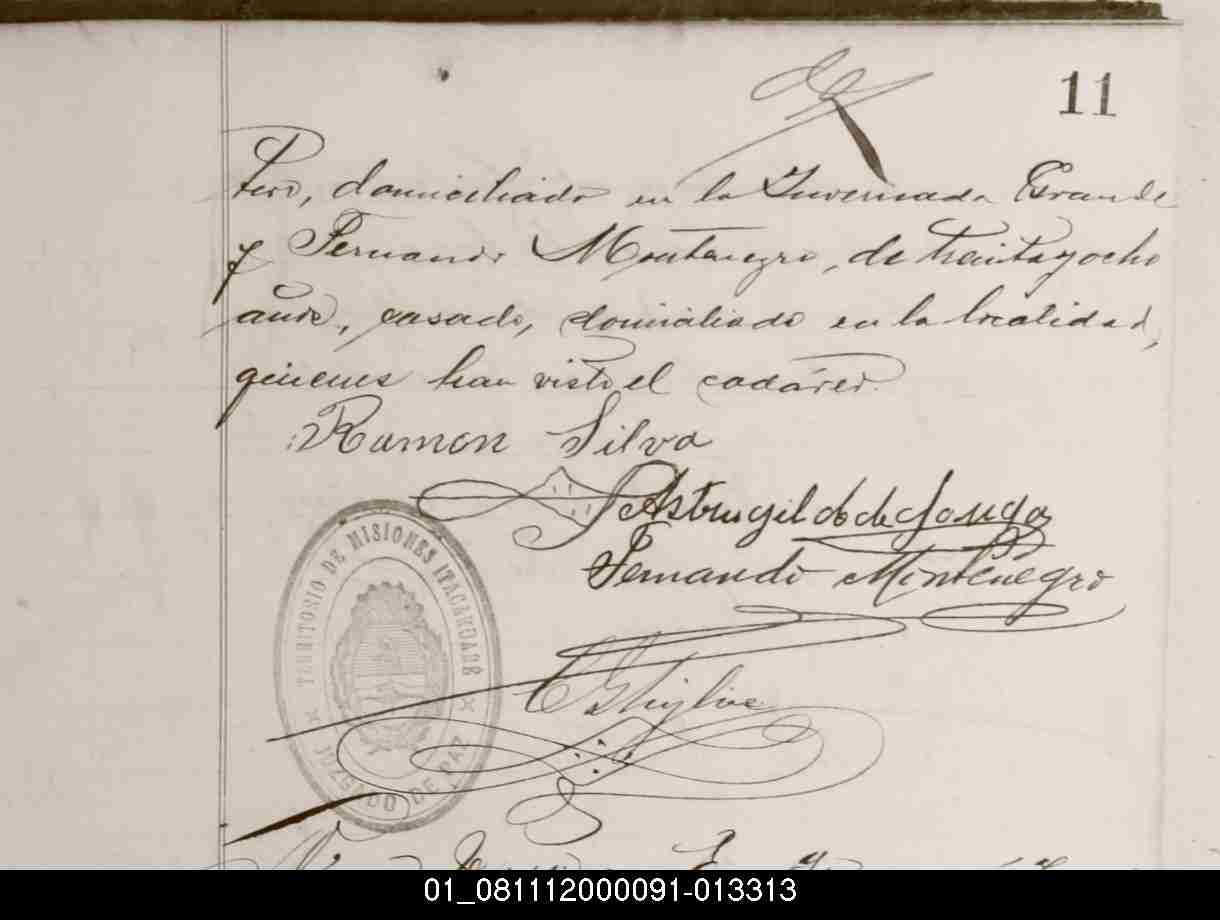 11
tero, domiciliado en la Invernada Grande
y Fernando Montenegro, de treinta y ocho
años, casado, domiciliado en la localidad,
quienes han visto el cadáver.
Ramon Silva
Astrugildo de Souza
Fernando Montenegro
TERRITORIO DE MISIONES ITACARUARÉ
JUZGADO DE PAZ
01_081112000091-013313